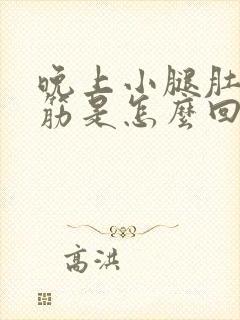 晚上小腿肚
筋是怎麼回
高洪